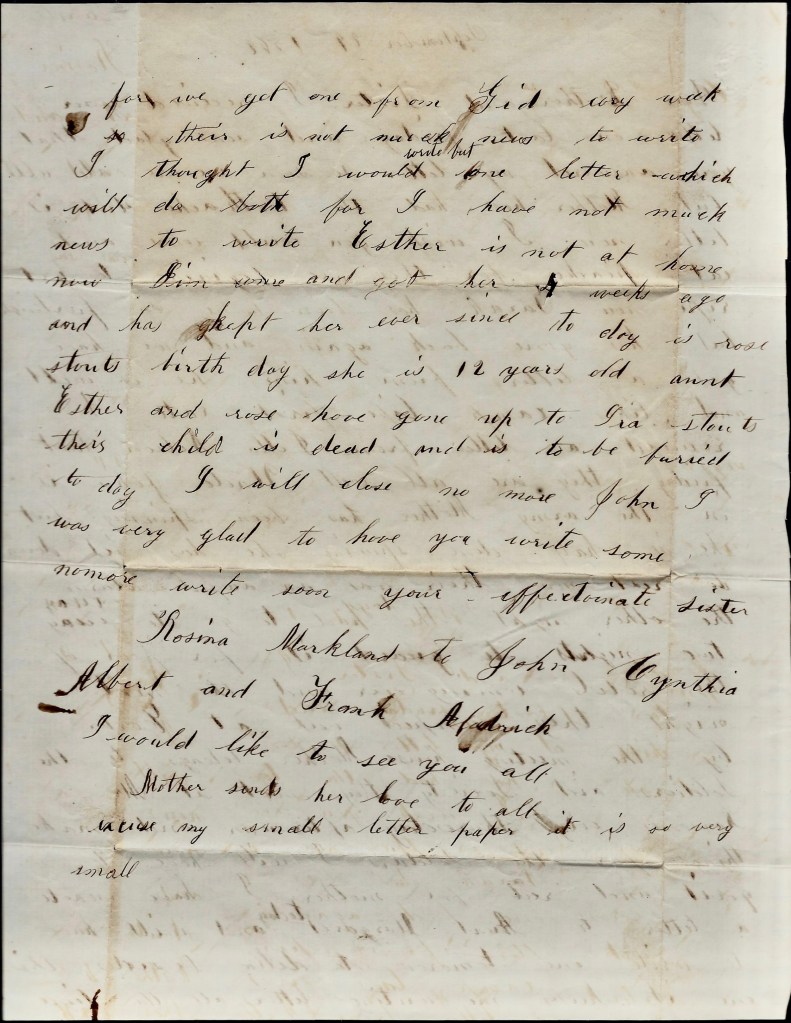 for we get one from Gid evry week
so their is not much news to write
I thought I would write but one letter which
will do both for I have not much
news to write Esther is not at home
now Jim come and got her 4 weeks ago
and has kept her ever since to day is rose
stouts birth day she is 12 years old aunt
Esther and rose have gone up to Ira stouts
their child is dead and is to be buried
to day I will close no more John I
was very glad to have you write some
nomore write soon your affectoinate sister
Rosina Markland to John Cynthia
Albert and Frank
I would like to see you all
Mother sends her love to all
my small letter paper it is so very
small